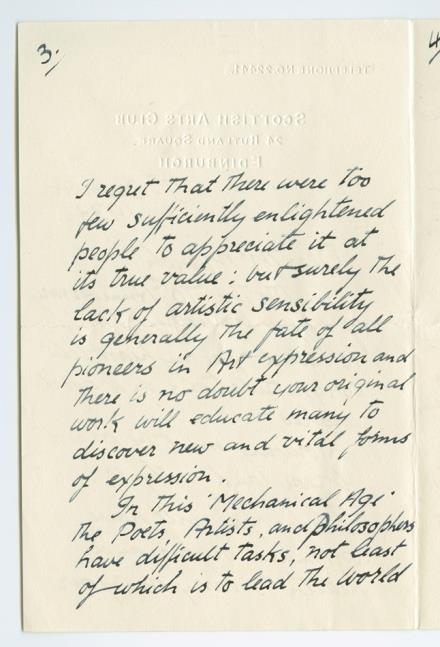 3.
TELEPHONE NO. 22441.
SCOTTISH ARTS CLUB
24 RUTLAND SQUARE
EDINBURGH
I regret that there were too
few sufficiently enlightened
people to appreciate it at
its true value; but surely the
lack of artistic sensibility
is generally the fate of all
pioneers in Art expression and
there is no doubt your original
work will educate many to
discover new and vital forms
of expression.
In this 'Mechanical Age'
the Poets, Artists, and Philosophers
have difficult tasks, not least
of which is to lead the world